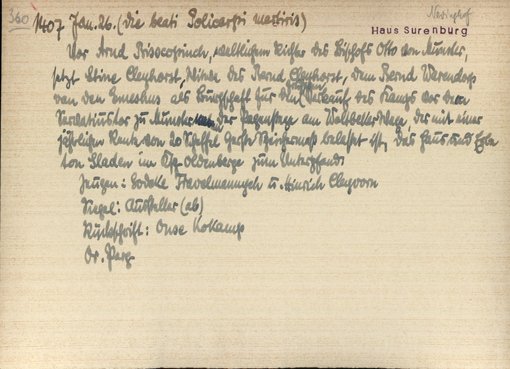 360
Nevinghof
1407 Jan. 26. (die beati Policarpi martiris)
Haus Surenburg
Vor Arnd Bisscopinch, weltlichem Richter des Bischofs Otto von Münster,
setzt Stine Cleyhorst, Witwe des Bernd Cleyhorst, dem Bernd Warendorp
van den Emeshus als Bürgschaft für den Verkauf des Kamps vor dem
Servatiustor zu Münster der Hagenstege am Wolbecker Wege, der mit einer
jährlichen Rente von 20 Scheffel Gerste belastet ist, das Haus und Erbe
ton Sladen im Ksp. Oldenberge zum Unterpfand
Zeugen: Godeke Travelmannynch u. Hinrich Cleyvorn
Siegel: Aussteller (ab)
Rückschrift: Onse Kokamp
Or. Perg.